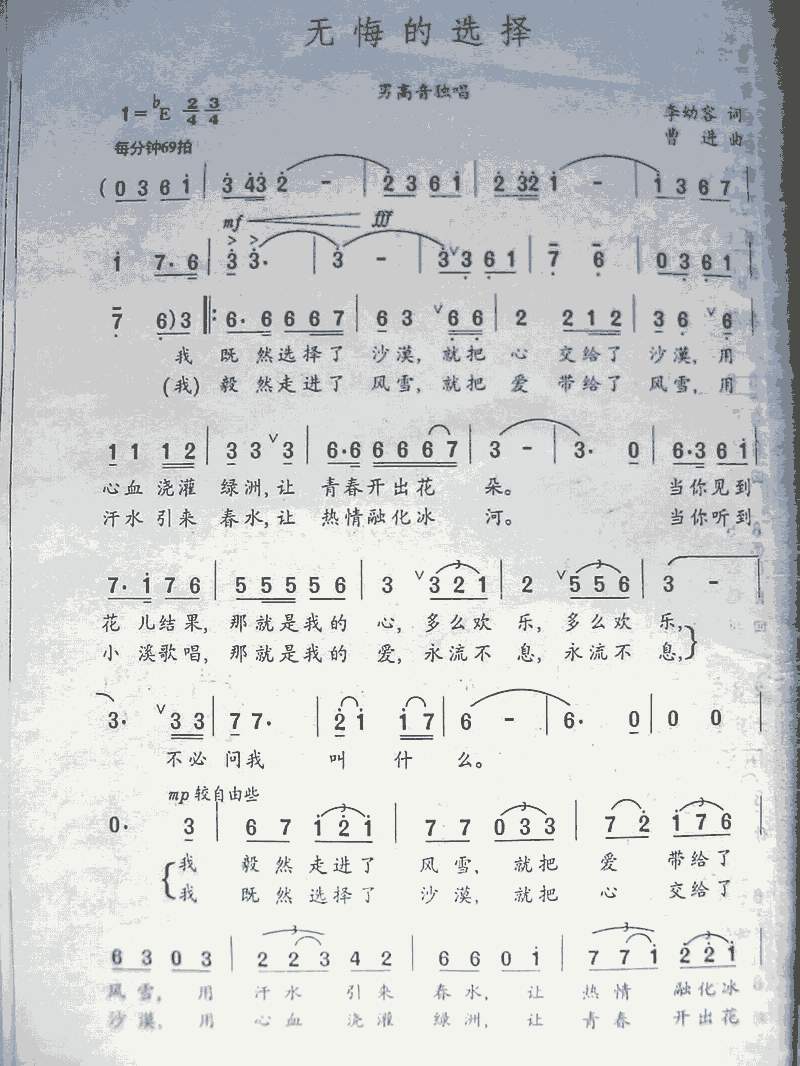 无悔的选择
男高音独唱
1=♭E 2/4 3/4
李幼容 词
每分钟69拍
曹 进 曲
(0 3 6 i | 3 43 2 - | 2 3 6 1 | 2 32 i - | 1 3 6 7 |
mf fff
i 7· 6 | 3 3· | 3 - | 3 ∨3 6 1 | 7 6 | 0 3 6 1 |
7 6)3 |: 6· 6 6 6 7 | 6 3 ∨6 6 | 2 2 1 2 | 3 6 ∨6 |
我 既然选择了 沙漠，就把 心 交给了 沙漠，用
(我) 毅然走进了 风雪，就把 爱 带给了 风雪，用
1 1 1 2 | 3 3 ∨3 | 6·6 6 6 6 7 | 3 - | 3· 0 | 6·3 6 i |
心血 浇灌 绿洲，让 青春开出花 朵。 当你见到
汗水 引来 春水，让 热情融化冰 河。 当你听到
7· i 7 6 | 5 5 5 5 6 | 3 ∨3 2 1 | 2 ∨5 5 6 | 3 - |
花 儿结果，那就是我的 心，多么欢 乐，多么欢 乐，
小 溪歌唱，那就是我的 爱，永流不 息，永流不 息，}
3· ∨3 3 | 7 7· | 2 i | i 7 | 6 - | 6· 0 | 0 0 |
不必 问我 叫 什 么。
mp 较自由些
0· 3 | 6 7 i 2 i | 7 7 0 3 3 | 7 2 i 7 6 |
我 毅然 走进了 风雪，就把 爱 带给了
我 既然 选择了 沙漠，就把 心 交给了
6 3 0 3 | 2 2 3 4 2 | 6 6 0 i | 7 7 i 2 2 i |
风雪，用 汗水 引来 春水，让 热情 融化冰
沙漠，用 心血 浇灌 绿洲，让 青春 开出花